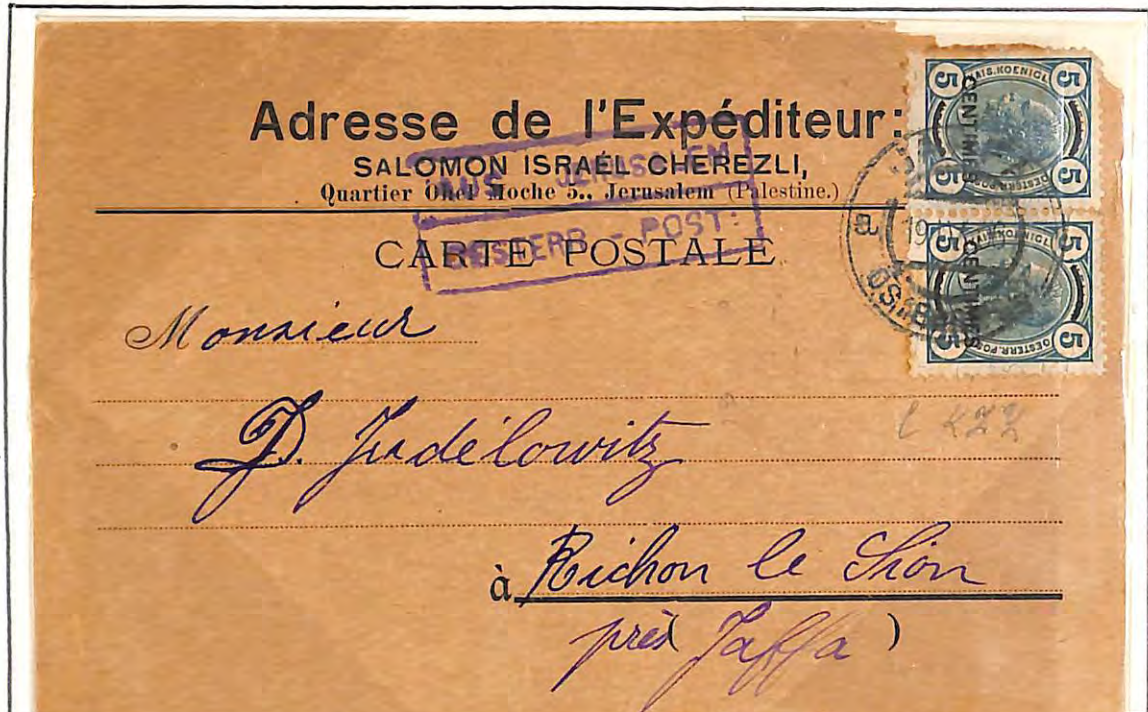 Adresse de l'Expéditeur:
SALOMON ISRAËL CHEREZLI,
Quartier Ohel Moche 5., Jerusalem (Palestine.)
AUS JERUSALEM
OESTERR. - POST:
CARTE POSTALE
5 KAIS. KOENIGL. 5
CENTIMES
5 OESTERR. POST 5
5 KAIS. KOENIGL. 5
CENTIMES
5 OESTERR. POST 5
a
19
Monsieur
D. Judélowitz
à Richon le Sion
près Jaffa)